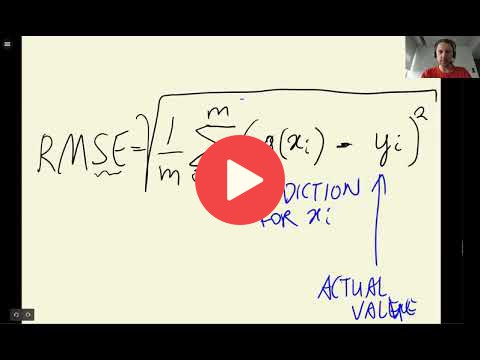 RMSE = √ 1/m Σ m (g(xi) - yi)²
DICTION
FOR xi
ACTUAL
VALUE